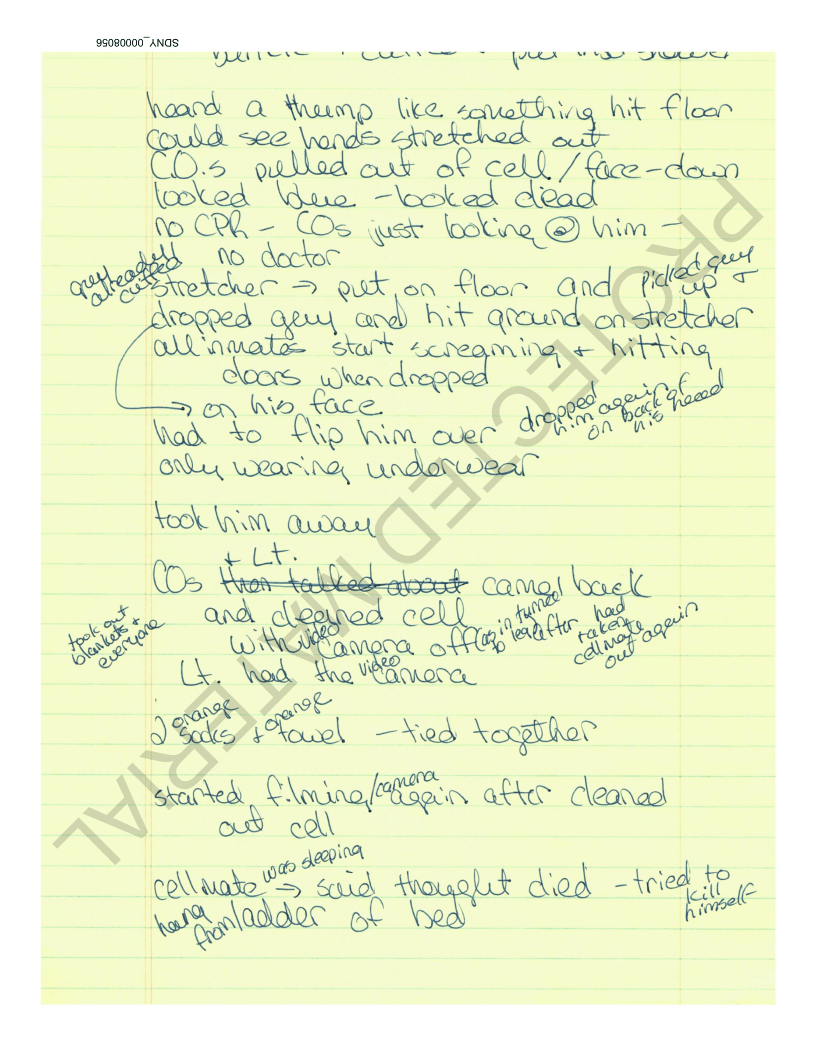 SDNY_00008056
put in shower
heard a thump like something hit floor
could see hands stretched out
C.O.s pulled out of cell/face-down
looked blue - looked dead
no CPR - COs just looking @ him -
no doctor
guy already cuffed
stretcher → put on floor and picked guy up +
dropped guy and hit ground on stretcher
all inmates start screaming + hitting
doors when dropped
→ on his face
dropped him again on back of his head
had to flip him over
only wearing underwear
took him away
+ Lt.
COs then talked about came back
and cleaned cell
took out blankets + everyone
with video camera off (as in turned to leg) after had taken cellmate out again
Lt. had the video camera
2 orange socks + orange towel - tied together
started filming/camera again after cleaned
out cell
cellmate was sleeping → said thought died - tried to kill himself
hang from/ladder of bed
PROTECTED MATERIAL